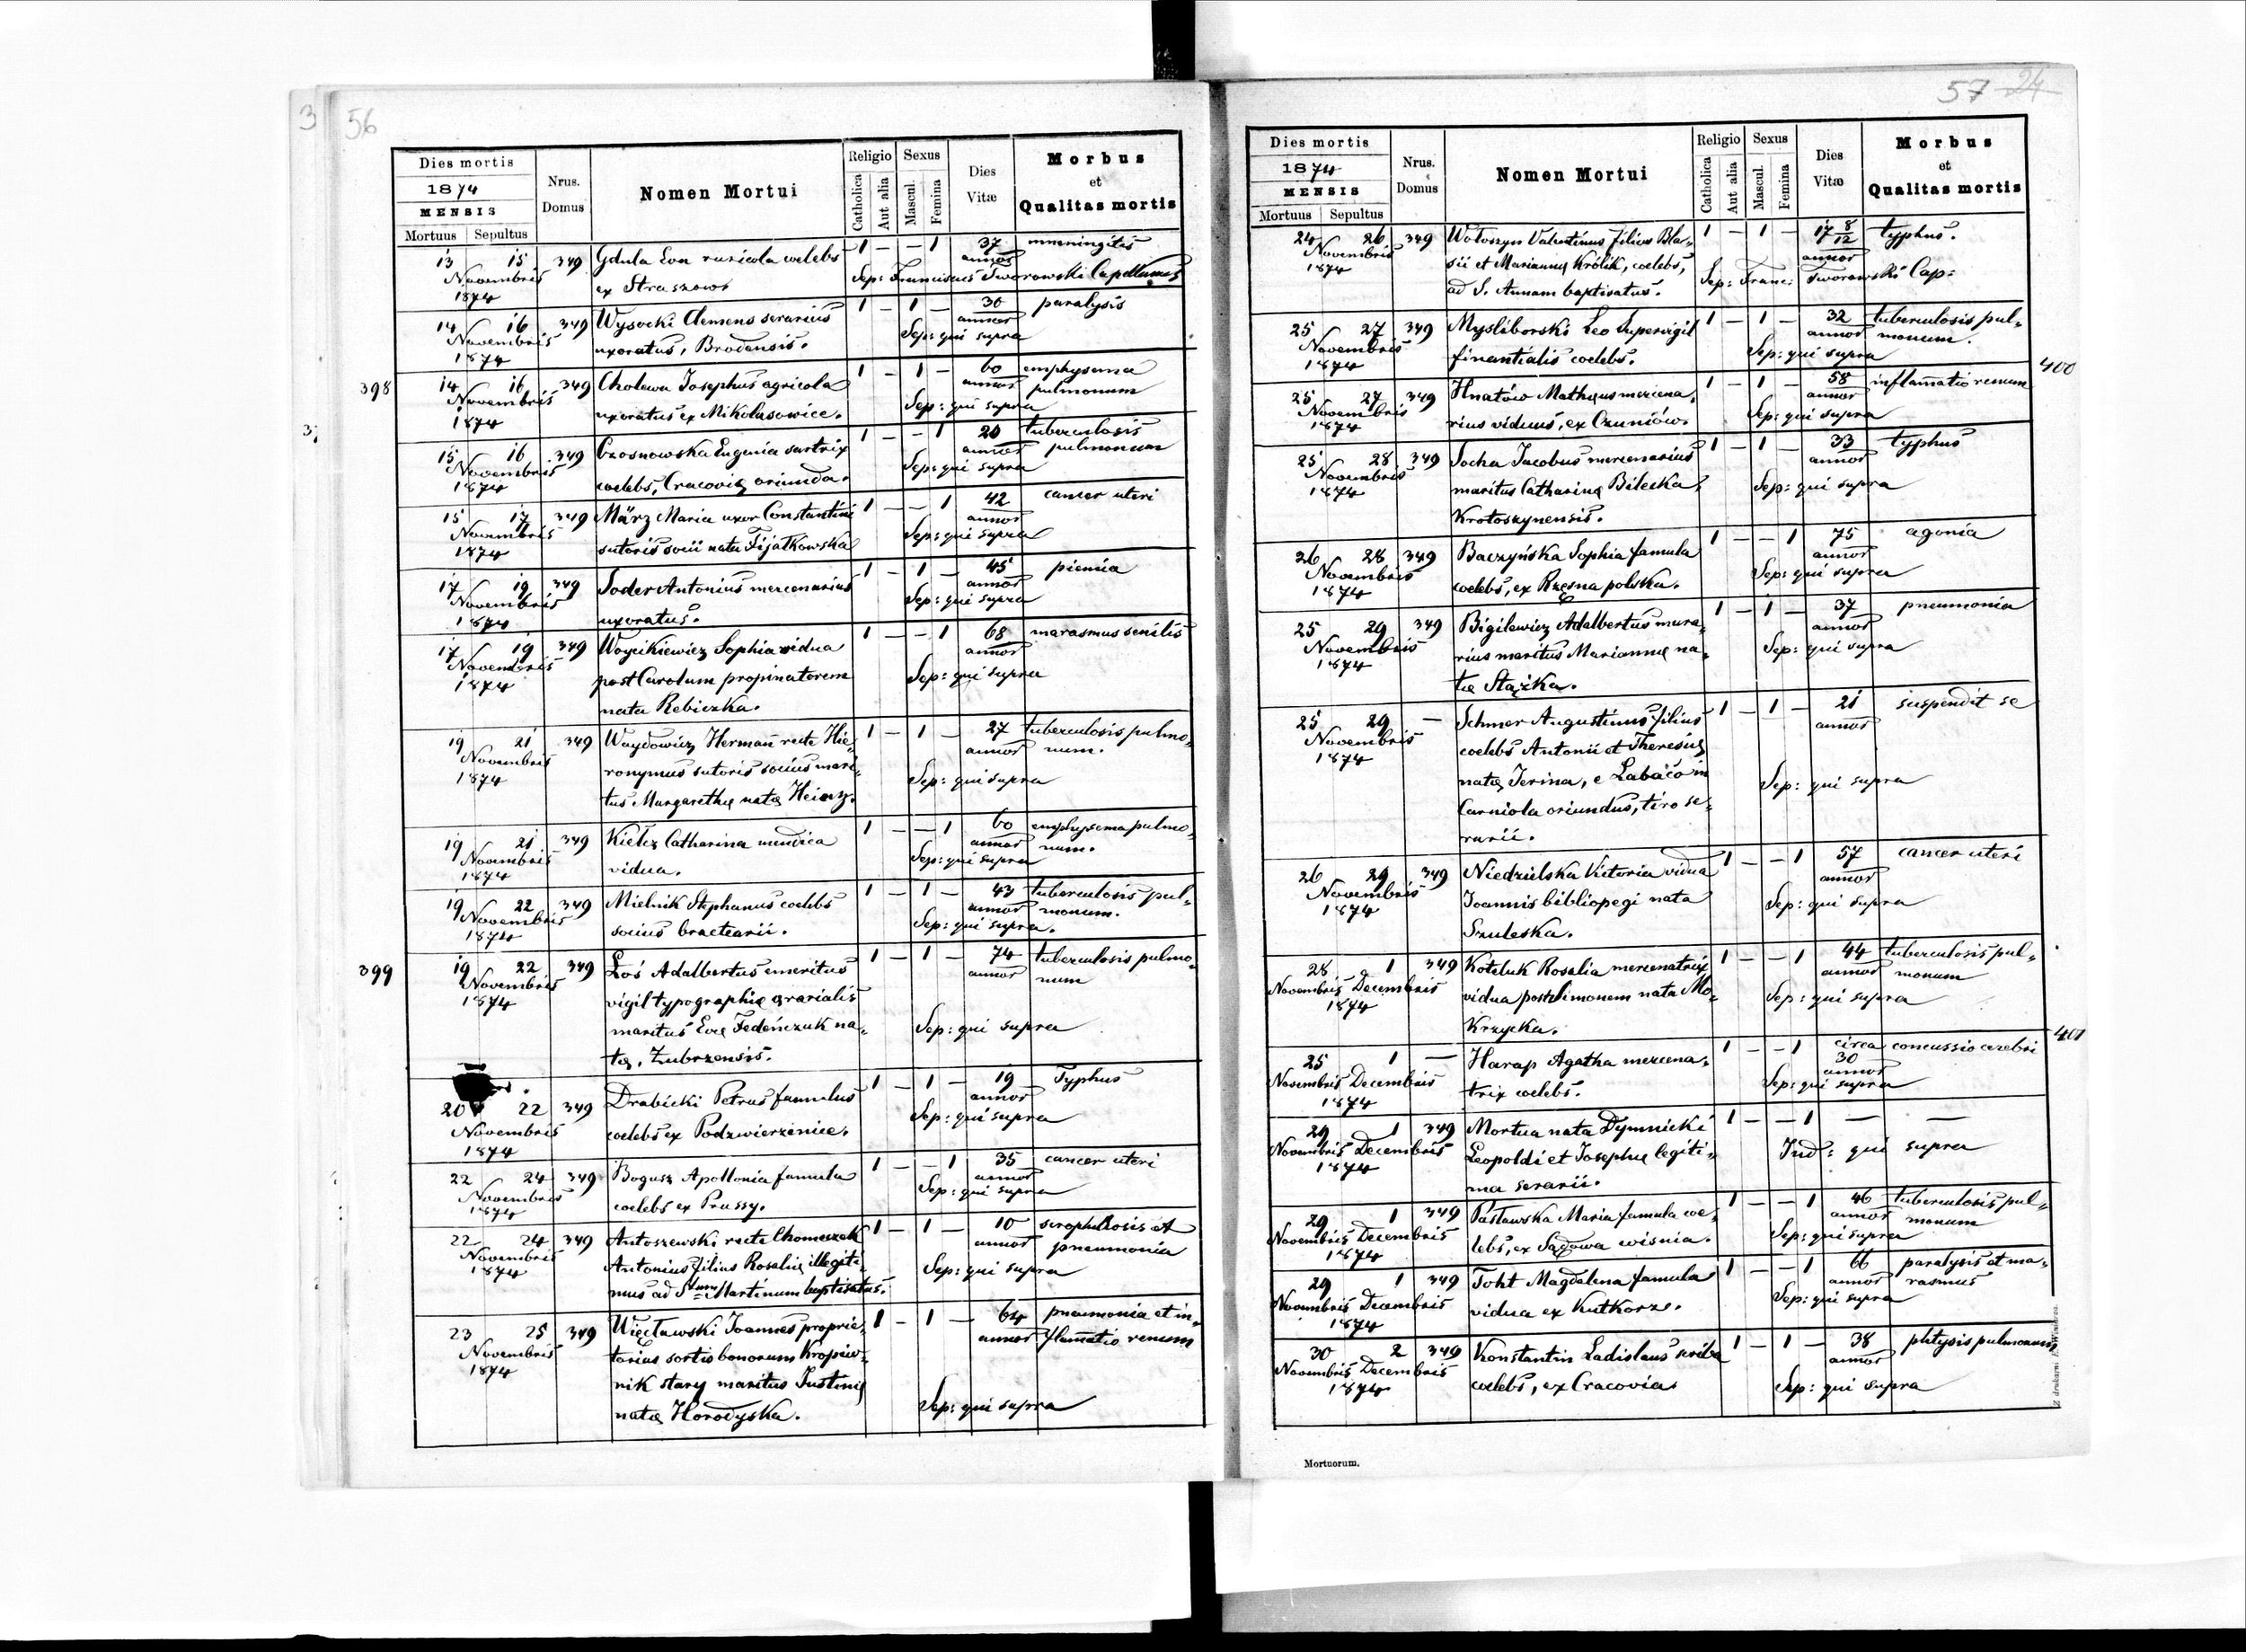 3 56
Dies mortis
1874
MENSIS
Mortuus Sepultus
Nrus.
Domus
Nomen Mortui
Religio
Catholica
Aut alia
Sexus
Mascul.
Femina
Dies
Vitæ
Morbus
et
Qualitas mortis
13 15 349 Gdula Eva ruricola coelebs 1 — — 1 37 meningitis
Novembris annor
1874 ex Straszow Sep: Franciscus Tworowski Capellanus
14 16 349 Wysocki Clemens serarius 1 — 1 — 30 paralysis
Novembris annor
1874 uxoratus, Brodensis. Sep: qui supra
398 14 16 349 Cholewa Josephus agricola 1 — 1 — 60 emphysema
Novembris annor pulmonum
1874 uxoratus ex Mikolasowice. Sep: qui supra
15 16 349 Czosnowska Eugenia sartrix 1 — — 1 20 tuberculosis
Novembris annor pulmonum
1874 coelebs, Cracovię oriunda. Sep: qui supra
15 17 349 März Maria uxor Constantini 1 — — 1 42 cancer uteri
Novembris annor
1874 sutoris socii nata Fijałkowska Sep: qui supra
17 19 349 Soder Antonius mercenarius 1 — 1 — 45 piemia
Novembris annor
1874 uxoratus. Sep: qui supra
17 19 349 Woycikiewicz Sophia vidua 1 — — 1 68 marasmus senilis
Novembris annor
1874 post Carolum propinatorem Sep: qui supra
nata Rebiczka.
19 21 349 Waydowicz Herman recte Hie- 1 — 1 — 27 tuberculosis pulmo-
Novembris ronymus sutoris socius mari- annor num.
1874 tus Margarethę natę Heinz. Sep: qui supra
19 21 349 Kielcz Catharina mendica 1 — — 1 60 emphysema pulmo-
Novembris annor num.
1874 vidua. Sep: qui supra
19 22 349 Mielnik Stephanus coelebs 1 — 1 — 43 tuberculosis pul-
Novembris annor monum.
1874 socius bractearii. Sep: qui supra.
399 19 22 349 Łoś Adalbertus emeritus 1 — 1 — 74 tuberculosis pulmo-
Novembris vigil typographię ęrarialis annor num
1874 maritus Evę Fedeńczuk na- Sep: qui supra
tę, Zubrzensis.
20 22 349 Drabicki Petrus famulus 1 — 1 — 19 Typhus
Novembris annor
1874 coelebs ex Podzwierzeniec. Sep: qui supra
22 24 349 Bogusz Apollonia famula 1 — — 1 35 cancer uteri
Novembris annor
1874 coelebs ex Prussy. Sep: qui supra
22 24 349 Antoszewski recte Chomeszek 1 — 1 — 10 scrophulosis et
Novembris Antonius filius Rosalię illegiti- annor pneumonia
1874 mus ad Stum Martinum baptisatus. Sep: qui supra
23 25 349 Więcławski Joannes proprie- 1 — 1 — 64 pneumonia et in-
Novembris tarius sortis bonorum Kropiw- annor flamatio renum
1874 nik stary maritus Justinę
natę Horodyska. Sep: qui supra
57 24
Dies mortis
1874
MENSIS
Mortuus Sepultus
Nrus.
Domus
Nomen Mortui
Religio
Catholica
Aut alia
Sexus
Mascul.
Femina
Dies
Vitæ
Morbus
et
Qualitas mortis
24 26 349 Wołoszyn Valentinus filius Bla- 1 — 1 — 17 8/12 typhus.
Novembris sii et Mariannę Królik, coelebs, annor
1874 ad S. Annam baptisatus. Sep: Franc: Tworowski Cap:
25 27 349 Mysliborski Leo Supervigil 1 — 1 — 32 tuberculosis pul-
Novembris annor monum.
1874 finantialis coelebs. Sep: qui supra
400
25 27 349 Hnatów Mathęus mercena- 1 — 1 — 58 inflamatio renum
Novembris annor
1874 rius viduus, ex Czuniów. Sep: qui supra
25 28 349 Socha Jacobus mercenarius 1 — 1 — 33 typhus
Novembris annor
1874 maritus Catharinę Bileska, Sep: qui supra
Krotoszynensis.
26 28 349 Baczyńska Sophia famula 1 — — 1 75 agonia
Novembris annor
1874 coelebs, ex Rzęsna polska. Sep: qui supra
25 29 349 Bigilewicz Adalbertus mura- 1 — 1 — 37 pneumonia
Novembris rius maritus Mariannę na- annor
1874 tę Stążka. Sep: qui supra
25 29 — Schmer Augustinus filius 1 — 1 — 21 suspendit se
Novembris coelebs Antonii et Theresię annor
1874 natę Jerina, e Labaco in Sep: qui supra
Carniola oriundus, tiro se-
rarii.
26 29 349 Niedzielska Victoria vidua 1 — — 1 57 cancer uteri
Novembris Joannis bibliopegi nata annor
1874 Szuleska. Sep: qui supra
28 1 349 Koteluk Rosalia mercenatrix 1 — — 1 44 tuberculosis pul-
Novembris Decembris vidua post Simonem nata Mo- annor monum
1874 krzycka. Sep: qui supra
401
25 1 — Harap Agatha mercena- 1 — — 1 circa concussio cerebri
30
Novembris Decembris annor
1874 trix coelebs. Sep: qui supra
29 1 349 Mortua nata Dymnicki 1 — — 1 — —
Novembris Decembris Leopoldi et Josephę legiti- Ind: qui supra
1874 ma serarii.
29 1 349 Pasławska Maria famula coe- 1 — — 1 46 tuberculosis pul-
Novembris Decembris annor monum
1874 lebs, ex Sądowa wisnia. Sep: qui supra
29 1 349 Toht Magdalena famula 1 — — 1 66 paralysis et ma-
Novembris Decembris annor rasmus
1874 vidua ex Kutkorz. Sep: qui supra
30 2 349 Konstantin Ladislaus scriba 1 — 1 — 38 phtysis pulmonum
Novembris Decembris annor
1874 coelebs, ex Cracovia. Sep: qui supra
Mortuorum.
Z drukarni E. Winiarza.